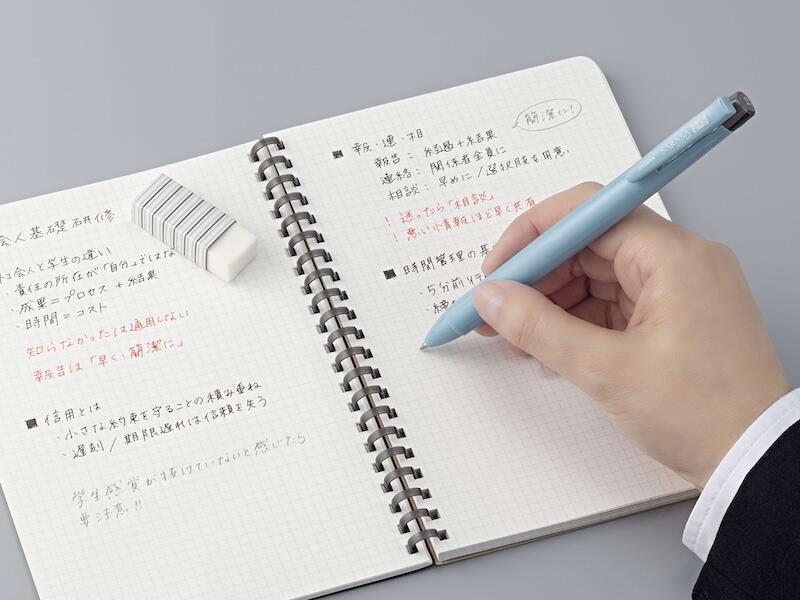 会人基礎研修
社会人と学生の違い
・責任の所在が「自分」ではな
・成果=プロセス+結果
・時間=コスト
知らなかったは通用しない
報告は「早く・簡潔に」
■ 信用とは
・小さな約束を守ることの積み重ね
・遅刻/期限遅れは信頼を失う
学生感覚が抜けていないと感じたら
要注意!!
簡潔に!
■ 報・連・相
報告:結論+結果
連絡:関係者全員に
相談:早めに/選択肢を用意
! 迷ったら「相談」
! 悪い情報ほど早く共有
■ 時間管理の基
・5分前行